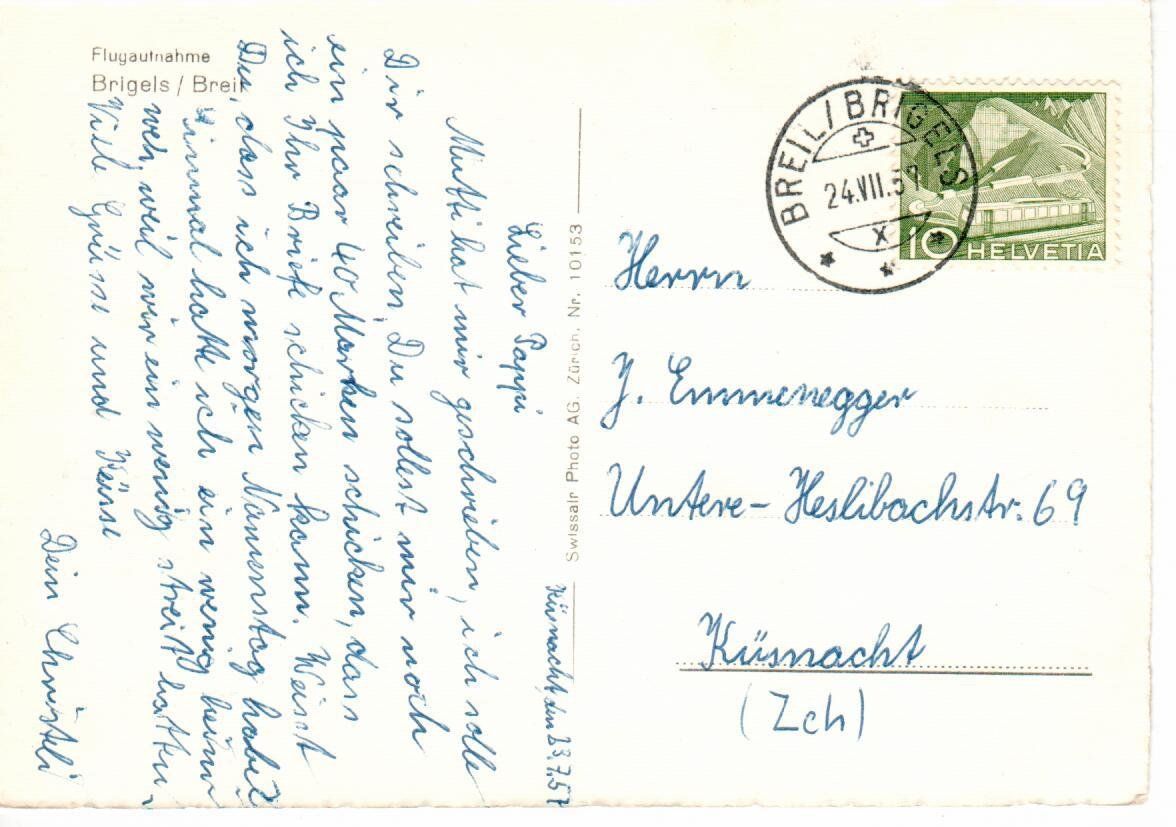 Flugaufnahme
Brigels / Breil
Küsnacht, den 23.7.57
Lieber Pappi
Mutti hat mir geschrieben, ich solle
Dir schreiben, Du sollest mir noch
ein paar 40 Marken schicken, dass
ich Ihr Briefe schicken kann. Weisst
Du, dass ich morgen Namenstag habe?
Einmal hatte ich ein wenig heim
weh, weil wir ein wenig streit hatten.
Viele Grüsse und Küsse
Dein Christeli
Swissair Photo AG. Zürich. Nr. 10153
BREIL/BRIGELS
24.VII.57
X
10 HELVETIA
Herrn
J. Emmenegger
Untere-Heslibachstr. 69
Küsnacht
(Zch)